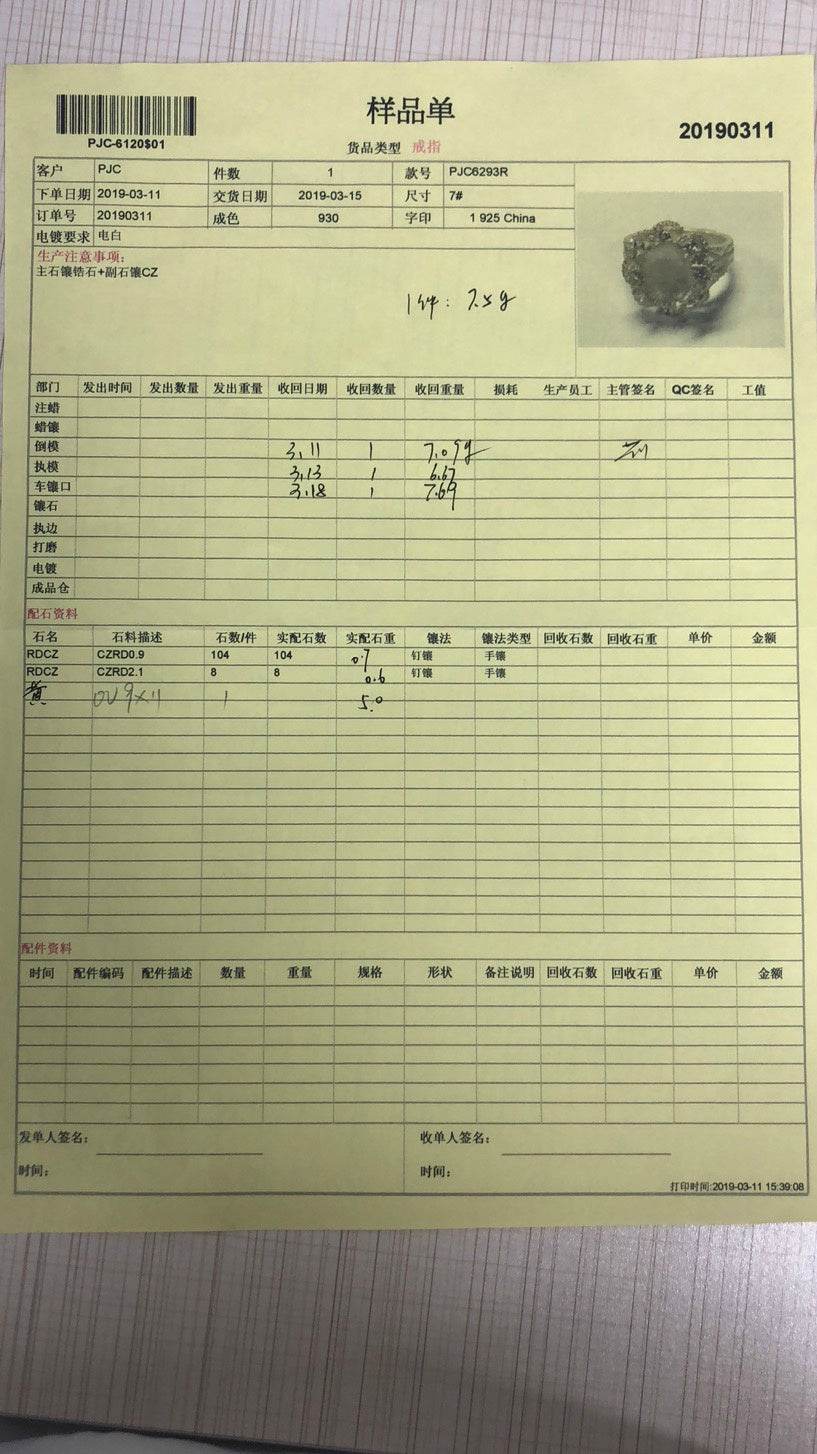 样品单
PJC-6120$01
货品类型 戒指
20190311
客户 PJC 件数 1 款号 PJC6293R
下单日期 2019-03-11 交货日期 2019-03-15 尺寸 7#
订单号 20190311 成色 930 字印 1 925 China
电镀要求 电白
生产注意事项:
主石镶锆石+副石镶CZ
1件: 7.5g
部门 发出时间 发出数量 发出重量 收回日期 收回数量 收回重量 损耗 生产员工 主管签名 QC签名 工值
注蜡
蜡镶
倒模 3.11 1 7.09g
执模 3.13 1 6.67
车镶口 3.18 1 7.69
镶石
执边
打磨
电镀
成品仓
配石资料
石名 石料描述 石数/件 实配石数 实配石重 镶法 镶法类型 回收石数 回收石重 单价 金额
RDCZ CZRD0.9 104 104 0.7 钉镶 手镶
RDCZ CZRD2.1 8 8 0.6 钉镶 手镶
黄 OV 9×11 1 5.0
配件资料
时间 配件编码 配件描述 数量 重量 规格 形状 备注说明 回收石数 回收石重 单价 金额
发单人签名: 收单人签名:
时间: 时间:
打印时间:2019-03-11 15:39:08